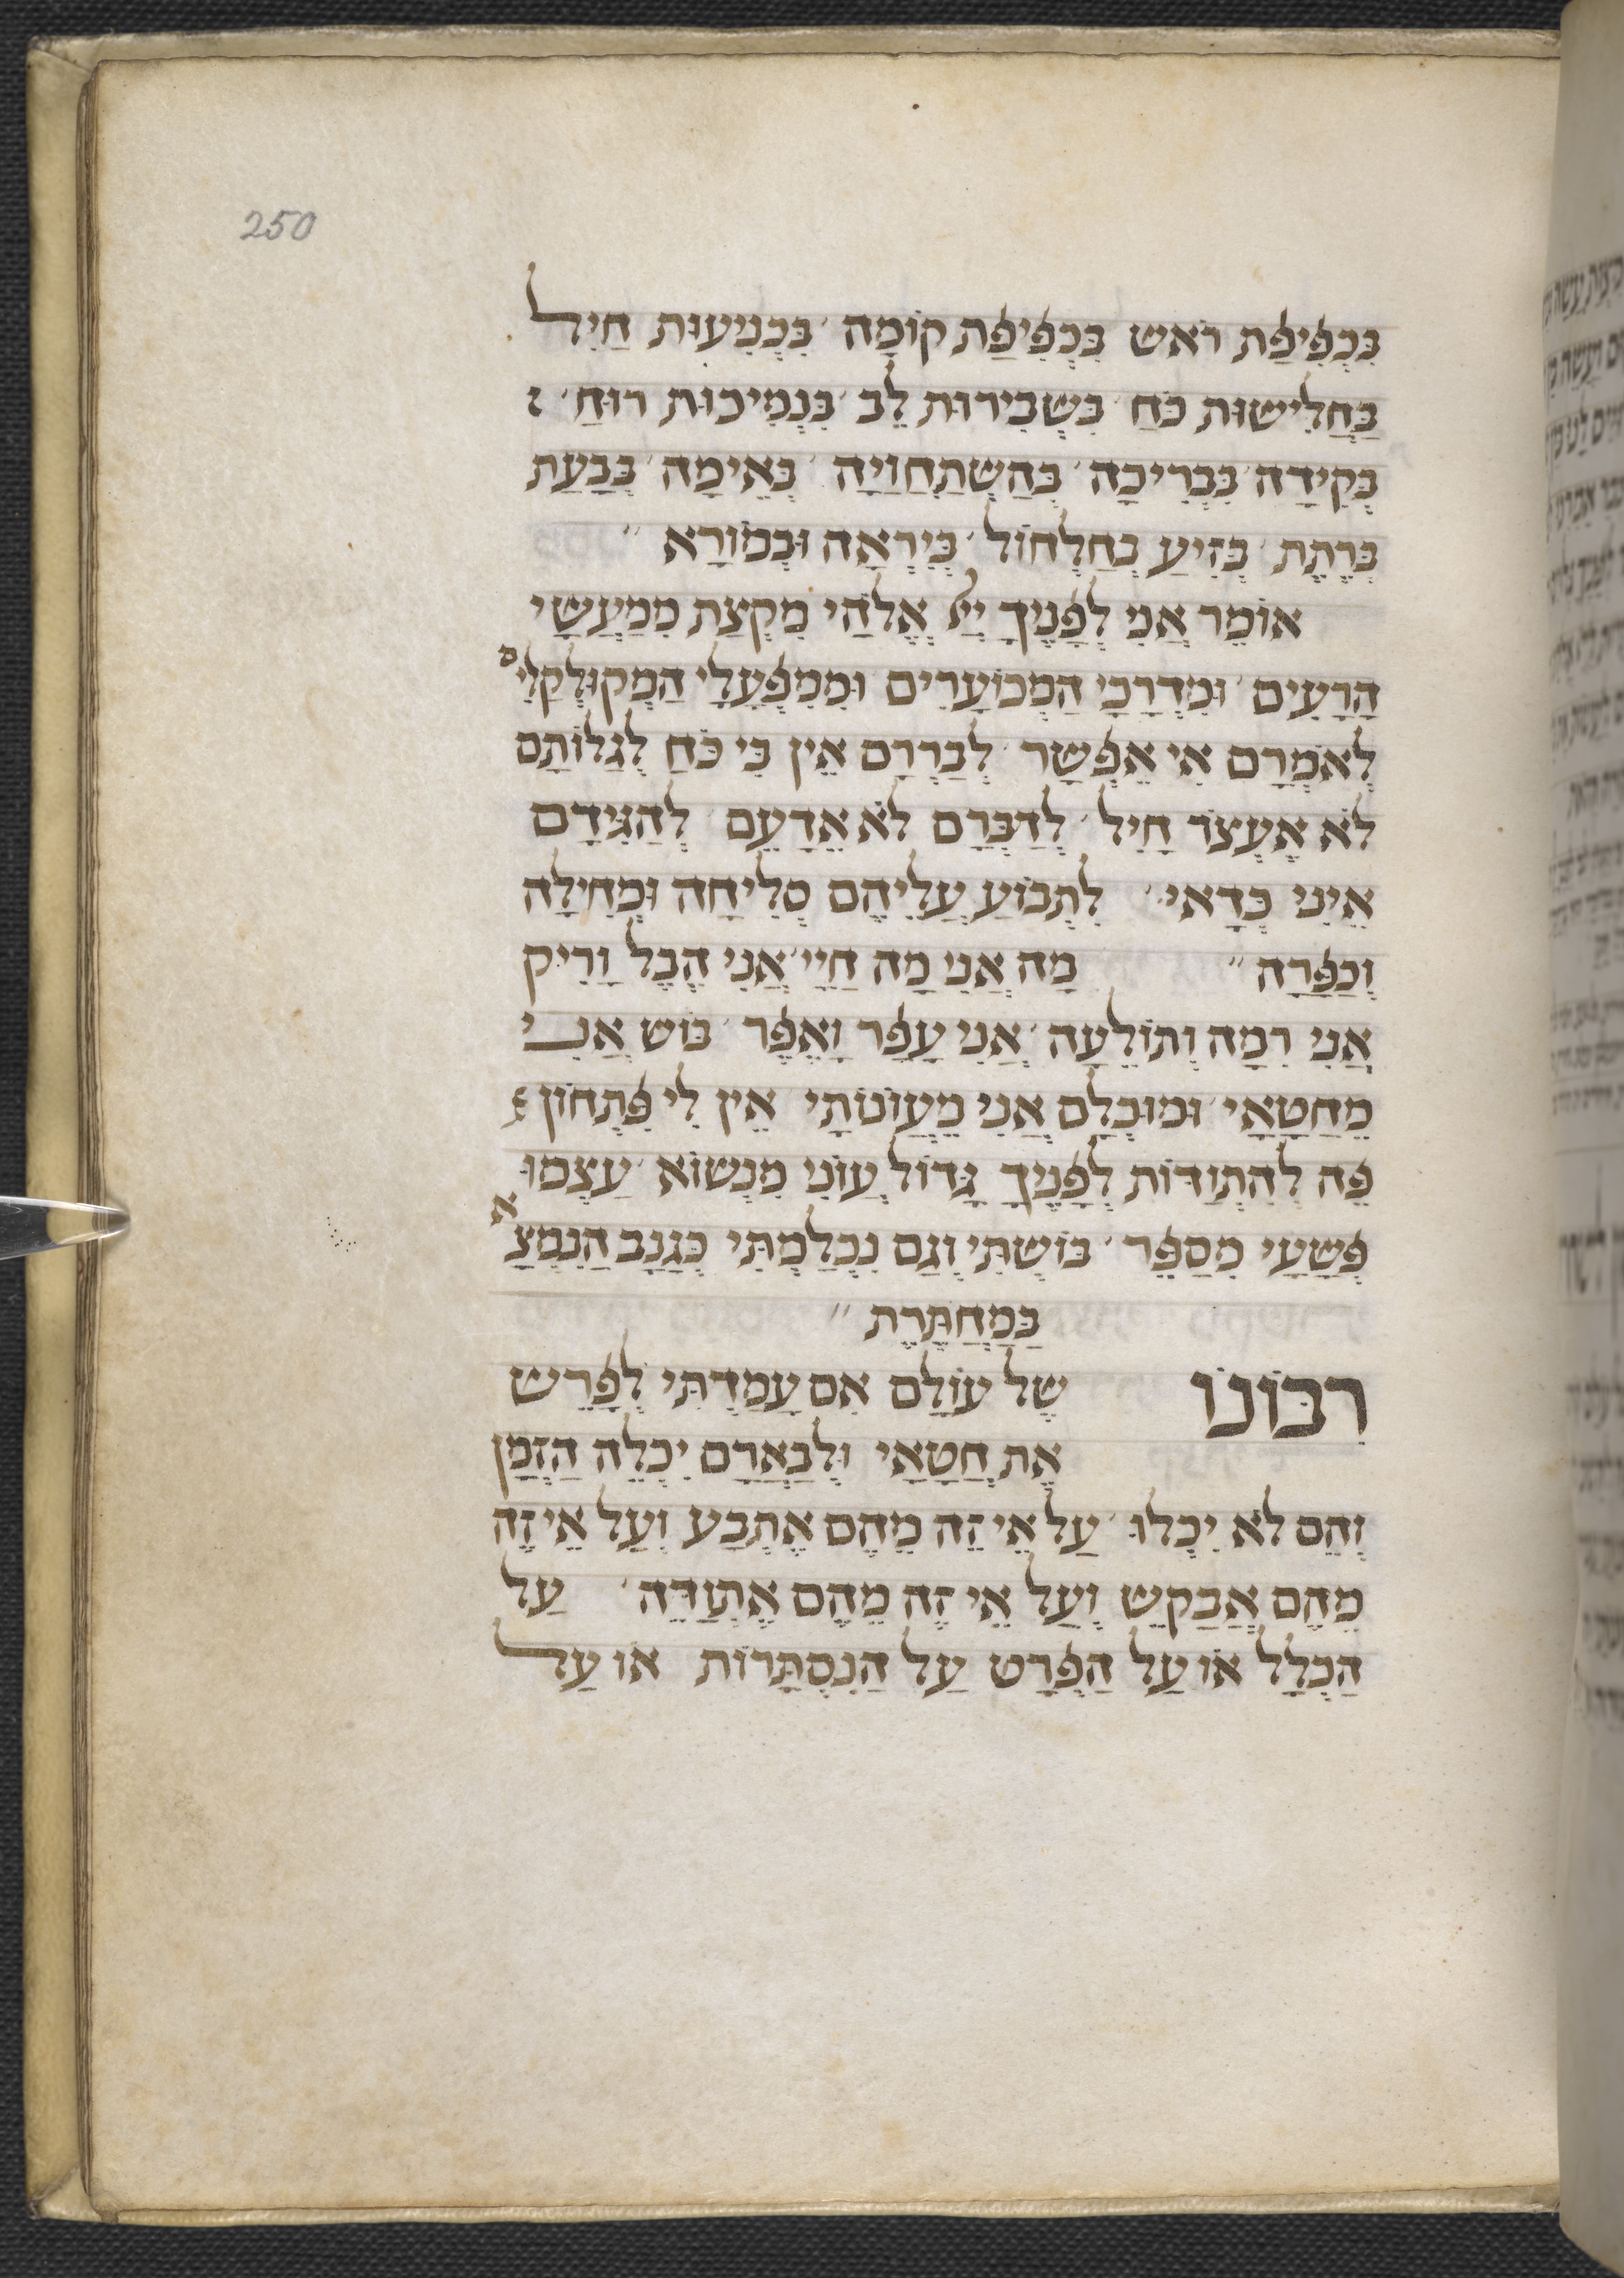 250
בִּכְפִיפַת רֹאשׁ בִּכְפִיפַת קוֹמָה׳ בִּכְנִיעוּת חַיִל
בַּחֲלִישׁוּת כֹּחַ׳ בִּשְׁבִירוּת לֵב׳ בִּנְמִיכוּת רוּחַ׳
בְּקִידָה׳ בִּבְרִיכָה׳ בְּהִשְׁתַּחֲוָיָה׳ בְּאֵימָה׳ בְּבַעַת
בְּרֶתֶת׳ בְּזִיעַ בְּחַלְחוֹל׳ בְּיִרְאָה וּבְמוֹרָא״
אוֹמֵר אֲנִי לְפָנֶיךָ יְיָ אֱלֹהַי מִקְצַת מִמַּעֲשַׂי
הָרָעִים׳ וּמִדְּרָכַי הַמְכוֹעָרִים וּמִמִּפְעָלַי הַמְקוּלְקָלִים
לְאָמְרָם אִי אֶפְשָׁר׳ לְבָרְרָם אֵין בִּי כֹּחַ לְגַלּוֹתָם
לֹא אֶעְצֹר חַיִל׳ לְדַבְּרָם לֹא אֵדָעֵם׳ לְהַגִּידָם
אֵינִי כְּדָאי׳ לִתְבּוֹעַ עֲלֵיהֶם סְלִיחָה וּמְחִילָה
וְכַפָּרָה״ מָה אֲנִי מָה חַיַּי׳ אֲנִי הֶבֶל וָרִיק
אֲנִי רִמָּה וְתוֹלֵעָה׳ אֲנִי עָפָר וָאֵפֶר׳ בּוֹשׁ אֲנִי
מֵחֲטָאַי׳ וּמוּכְלָם אֲנִי מֵעֲוֹנוֹתַי׳ אֵין לִי פִּתְחוֹן
פֶּה לְהִתְוַדּוֹת לְפָנֶיךָ גָּדוֹל עֲוֹנִי מִנְּשׂוֹא׳ עָצְמוּ
פְשָׁעַי מִסַּפֵּר׳ בּוֹשְׁתִּי וְגַם נִכְלַמְתִּי כְּגַנָּב הַנִּמְצָא
בַּמַּחְתֶּרֶת״
רִבּוֹנוֹ שֶׁל עוֹלָם אִם עָמַדְתִּי לְפָרֵשׁ
אֶת חֲטָאַי וּלְבָאֲרָם יִכְלֶה הַזְּמָן
וְהֵם לֹא יִכְלוּ׳ עַל אֵי זֶה מֵהֶם אֶתְבַּע וְעַל אֵי זֶה
מֵהֶם אֲבַקֵּשׁ וְעַל אֵי זֶה מֵהֶם אֶתְוַדֶּה׳ עַל
הַכְּלָל אוֹ עַל הַפְּרָט עַל הַנִּסְתָּרוֹת אוֹ עַל